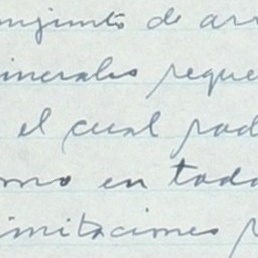 onjunto de arr
inerales reque
el cual pod
omo en todo
imitaciones p